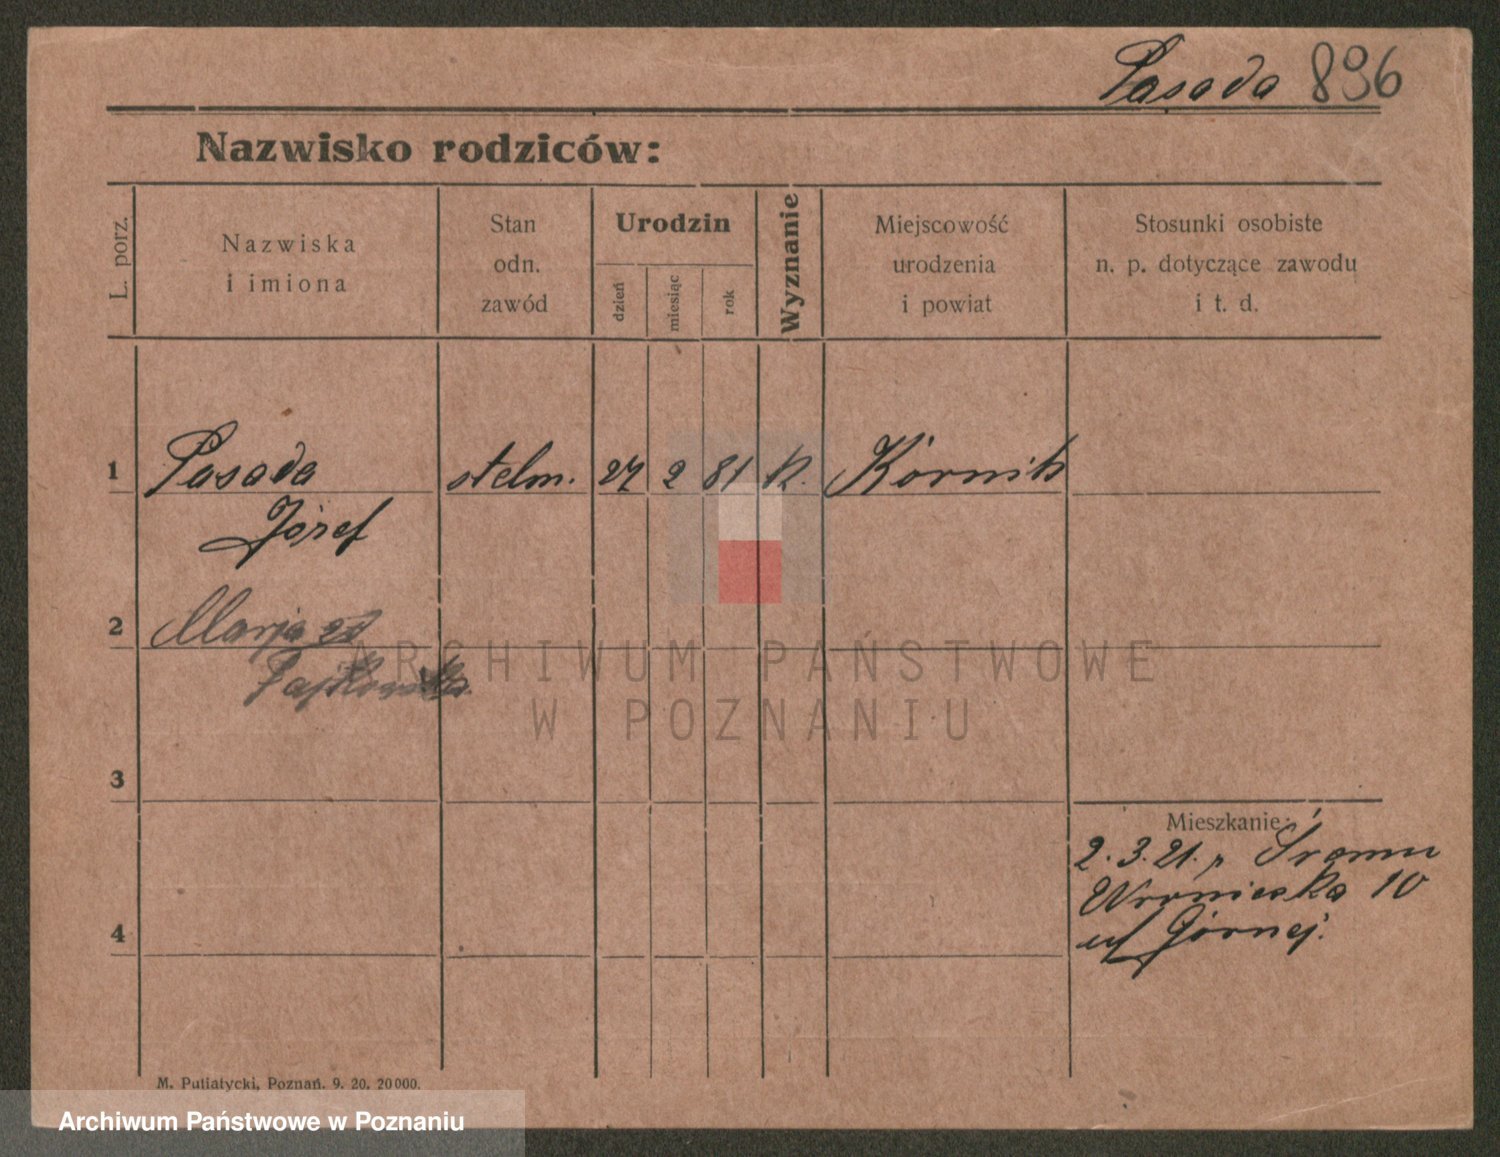 Pasada 896
Nazwisko rodziców:
L. porz.
Nazwiska
i imiona
Stan
odn.
zawód
Urodzin
dzień
miesiąc
rok
Wyznanie
Miejscowość
urodzenia
i powiat
Stosunki osobiste
n. p. dotyczące zawodu
i t. d.
1 Pasada stelm. 27 2 81 k. Kórnik
Józef
2 Marja zd
3
4
Mieszkanie:
2. 3. 21. Śremu
Wroniecka 10
Górnej.
M. Putiatycki, Poznań. 9. 20. 20000.
ARCHIWUM PAŃSTWOWE
W POZNANIU
Archiwum Państwowe w Poznaniu